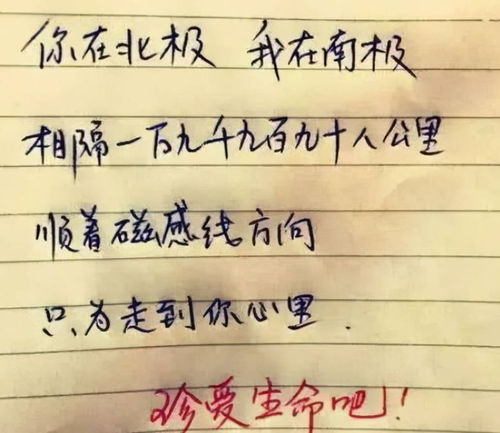 你在北极 我在南极
相隔一万九千九百九十八公里
顺着磁感线方向
只为走到你心里.
珍爱生命吧!